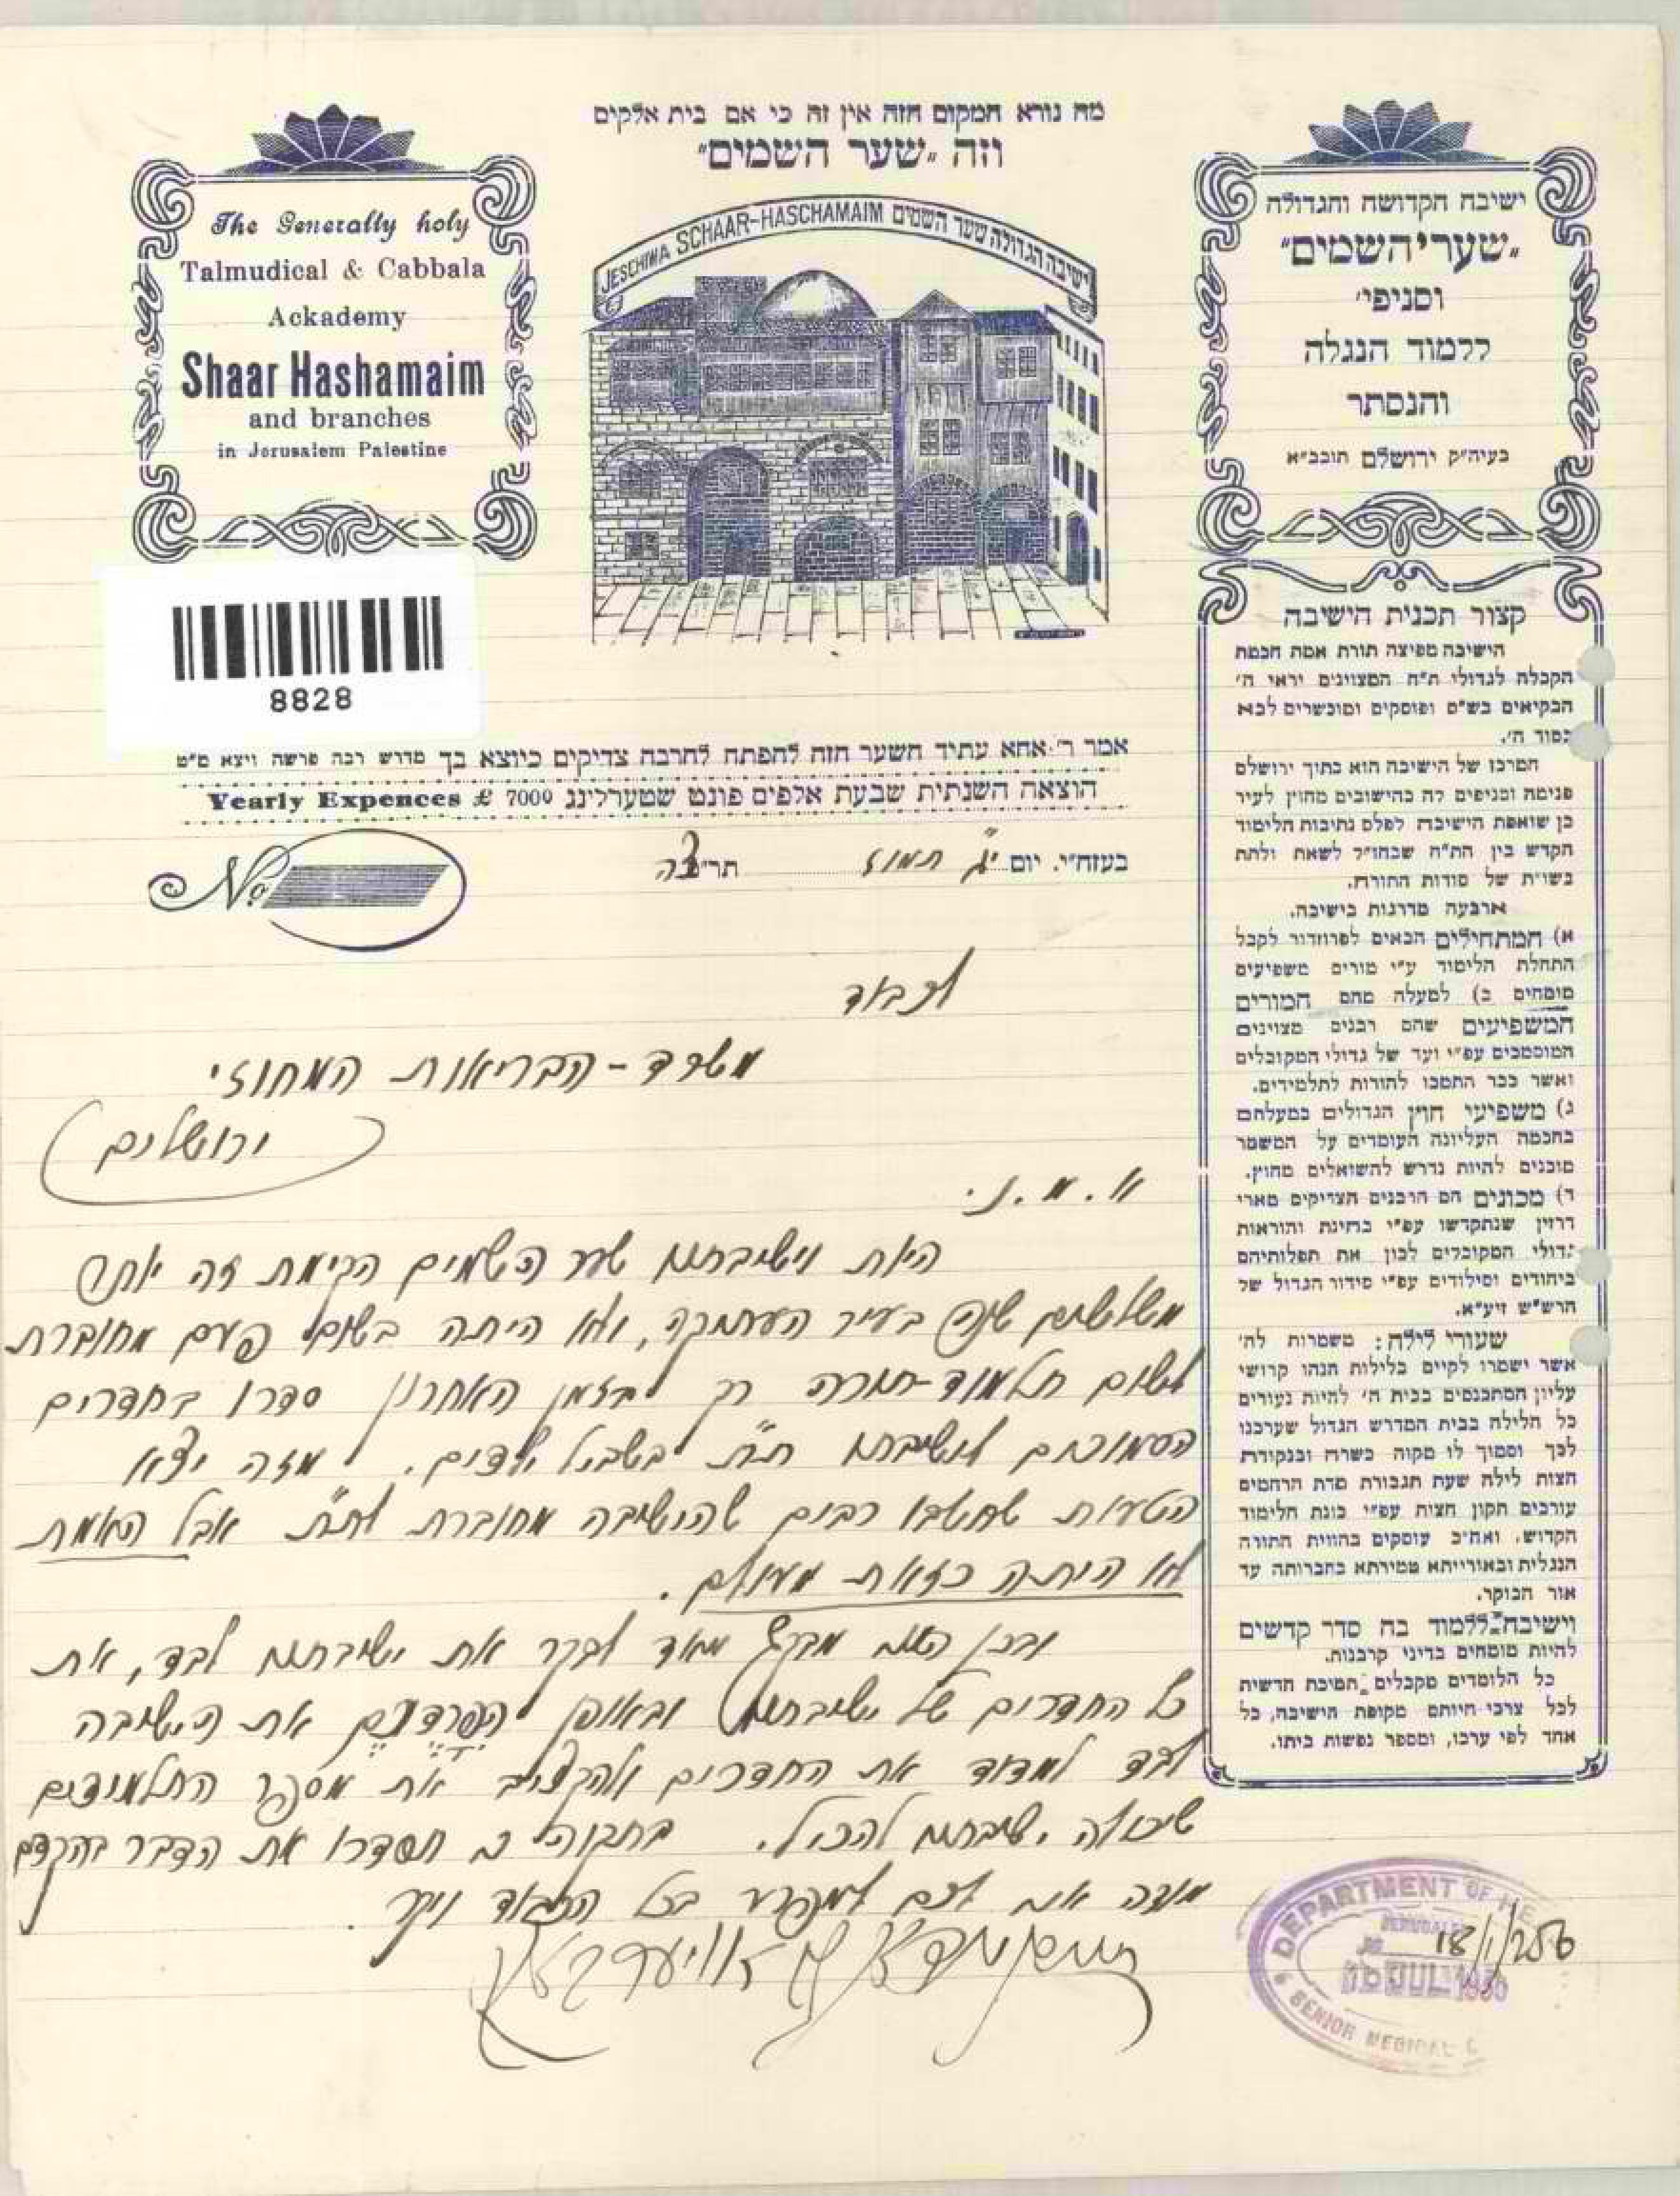 מה נורא המקום הזה אין זה כי אם בית אלקים
וזה „שער השמים"
The Generally holy
Talmudical & Cabbala
Ackademy
Shaar Hashamaim
and branches
in Jerusalem Palestine
JESCHIWA SCHAAR-HASCHAMAIM ישיבה הגדולה שער השמים
ישיבה הקדושה והגדולה
„שערי השמים"
וסניפי'
ללמוד הנגלה
והנסתר
בעיה"ק ירושלם תובב"א
8828
אמר ר' אחא עתיד השער הזה להפתח להרבה צדיקים כיוצא בך מדרש רבה פרשה ויצא ס"ט
הוצאה השנתית שבעת אלפים פונט שטערלינג Yearly Expences £ 7000
No
בעזה"י. יום י"ג תמוז תר"צה
לכבוד
משרד-הבריאות המחוזי
ירושלים
א.מ.נ.
היות וישיבתנו שער השמים הקימת זה יותר
משלשים שנה בעיר העתיקה, ולא היתה בשום פעם מחוברת
לשום תלמוד-תורה רק בזמן האחרון סדרו בחדרים
הסמוכים לישיבתנו ת"ת בשביל ילדים. מזה יצא
הטעות שחשבו רבים שהישיבה מחוברת לת"ת אבל האמת
לא היתה כזאת מעולם.
ובכן הנני מבקש מאד לבקר את ישיבתנו לבד, את
כל החדרים של ישיבתנו ובאופן את הישיבה
לבד למדוד את החדרים ולהקציב את מספר התלמידים
שיכולה ישיבתנו להכיל. בתקוה כי תסדרו את הדבר בהקדם
מודה אני לכם למפרע בכל הכבוד ויקר.
קצור תכנית הישיבה
הישיבה מפיצה תורת אמת חכמת
הקבלה לגדולי ת"ח המצוינים יראי ה'
הבקיאים בש"ס ופוסקים ומוכשרים לבא
בסוד ה'.
המרכז של הישיבה הוא בתוך ירושלם
פנימה וסניפים לה בהישובים מחוץ לעיר
כן שואפת הישיבה לפלס נתיבות הלימוד
הקדש בין הת"ח שבחו"ל לשאת ולתת
בשו"ת של סודות התורה.
ארבעה מדרגות בישיבה.
א) המתחילים הבאים לפרוזדור לקבל
התחלת הלימוד ע"י מורים משפיעים
מומחים ב) למעלה מהם המורים
המשפיעים שהם רבנים מצוינים
המוסמכים עפ"י ועד של גדולי המקובלים
ואשר כבר התמכו לחורות לתלמידים.
ג) משפיעי חוץ הגדולים במעלתם
בחכמה העליונה העומדים על המשמר
מוכנים להיות נדרש להשואלים מחוץ.
ד) מכונים הם הרבנים הצדיקים מארי
דרזין שנתקדשו עפ"י בחינת והוראות
גדולי המקובלים לכון את תפלותיהם
ביחודים וסילודים עפ"י סידור הגדול של
הרש"ש זיע"א.
שעורי לילה: משמרות לה'
אשר ישמרו לקיים בלילות הנהו קדושי
עליון המתכנסים בבית ה' להיות נעורים
כל הלילה בבית המדרש הגדול שערכנו
לכך וסמוך לו מקוה כשרה ובנקודת
חצות לילה שעת תגבורת מדת הרחמים
עורכים תקון חצות עפ"י כונת הלימוד
הקדוש. ואח"כ עוסקים בהוית התורה
הנגלית ובאורייתא טמירתא בחברותה עד
אור הבוקר.
וישיבה ללמוד בה סדר קדשים
להיות מומחים בדיני קרבנות.
כל הלומדים מקבלים תמיכה חדשית
לכל צרכי חיותם מקופת הישיבה, כל
אחד לפי ערכו, ומספר נפשות ביתו.
DEPARTMENT OF HE
JERUSALEM
JUL
SENIOR MEDICAL